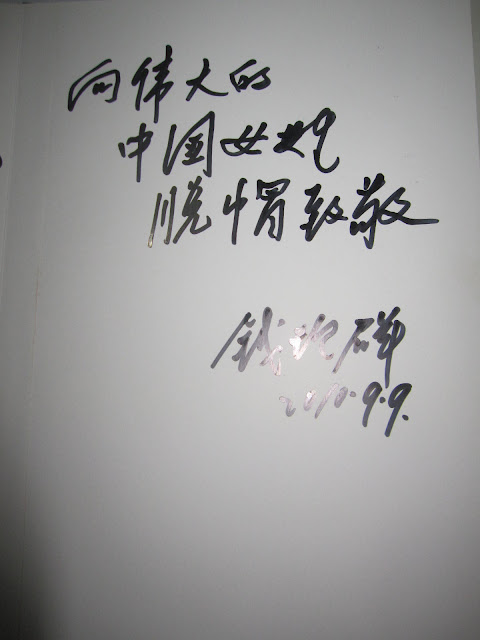 向伟大的
中国女性
脱帽致敬
钱理群
2010.9.9.